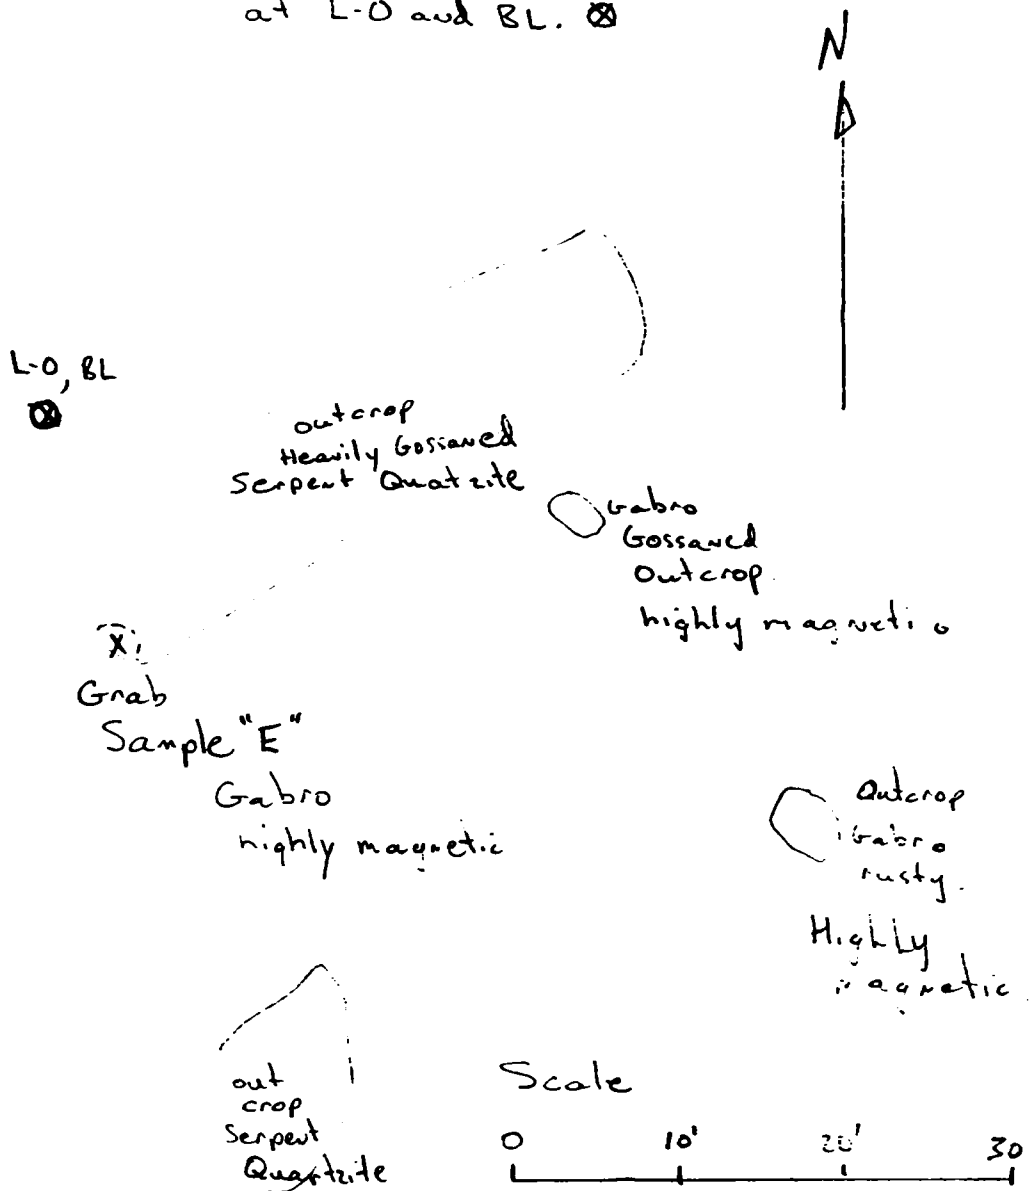 at L-O and BL.
N
L-O, BL
outcrop
Heavily Gossaned
Serpent Quatzite
Gabro
Gossaned
Outcrop
highly magnetic
X
Grab
Sample "E"
Gabro
highly magnetic
Outcrop
Gabro
rusty.
Highly
magnetic
out
crop
Serpent
Quartzite
Scale
0 10' 20' 30